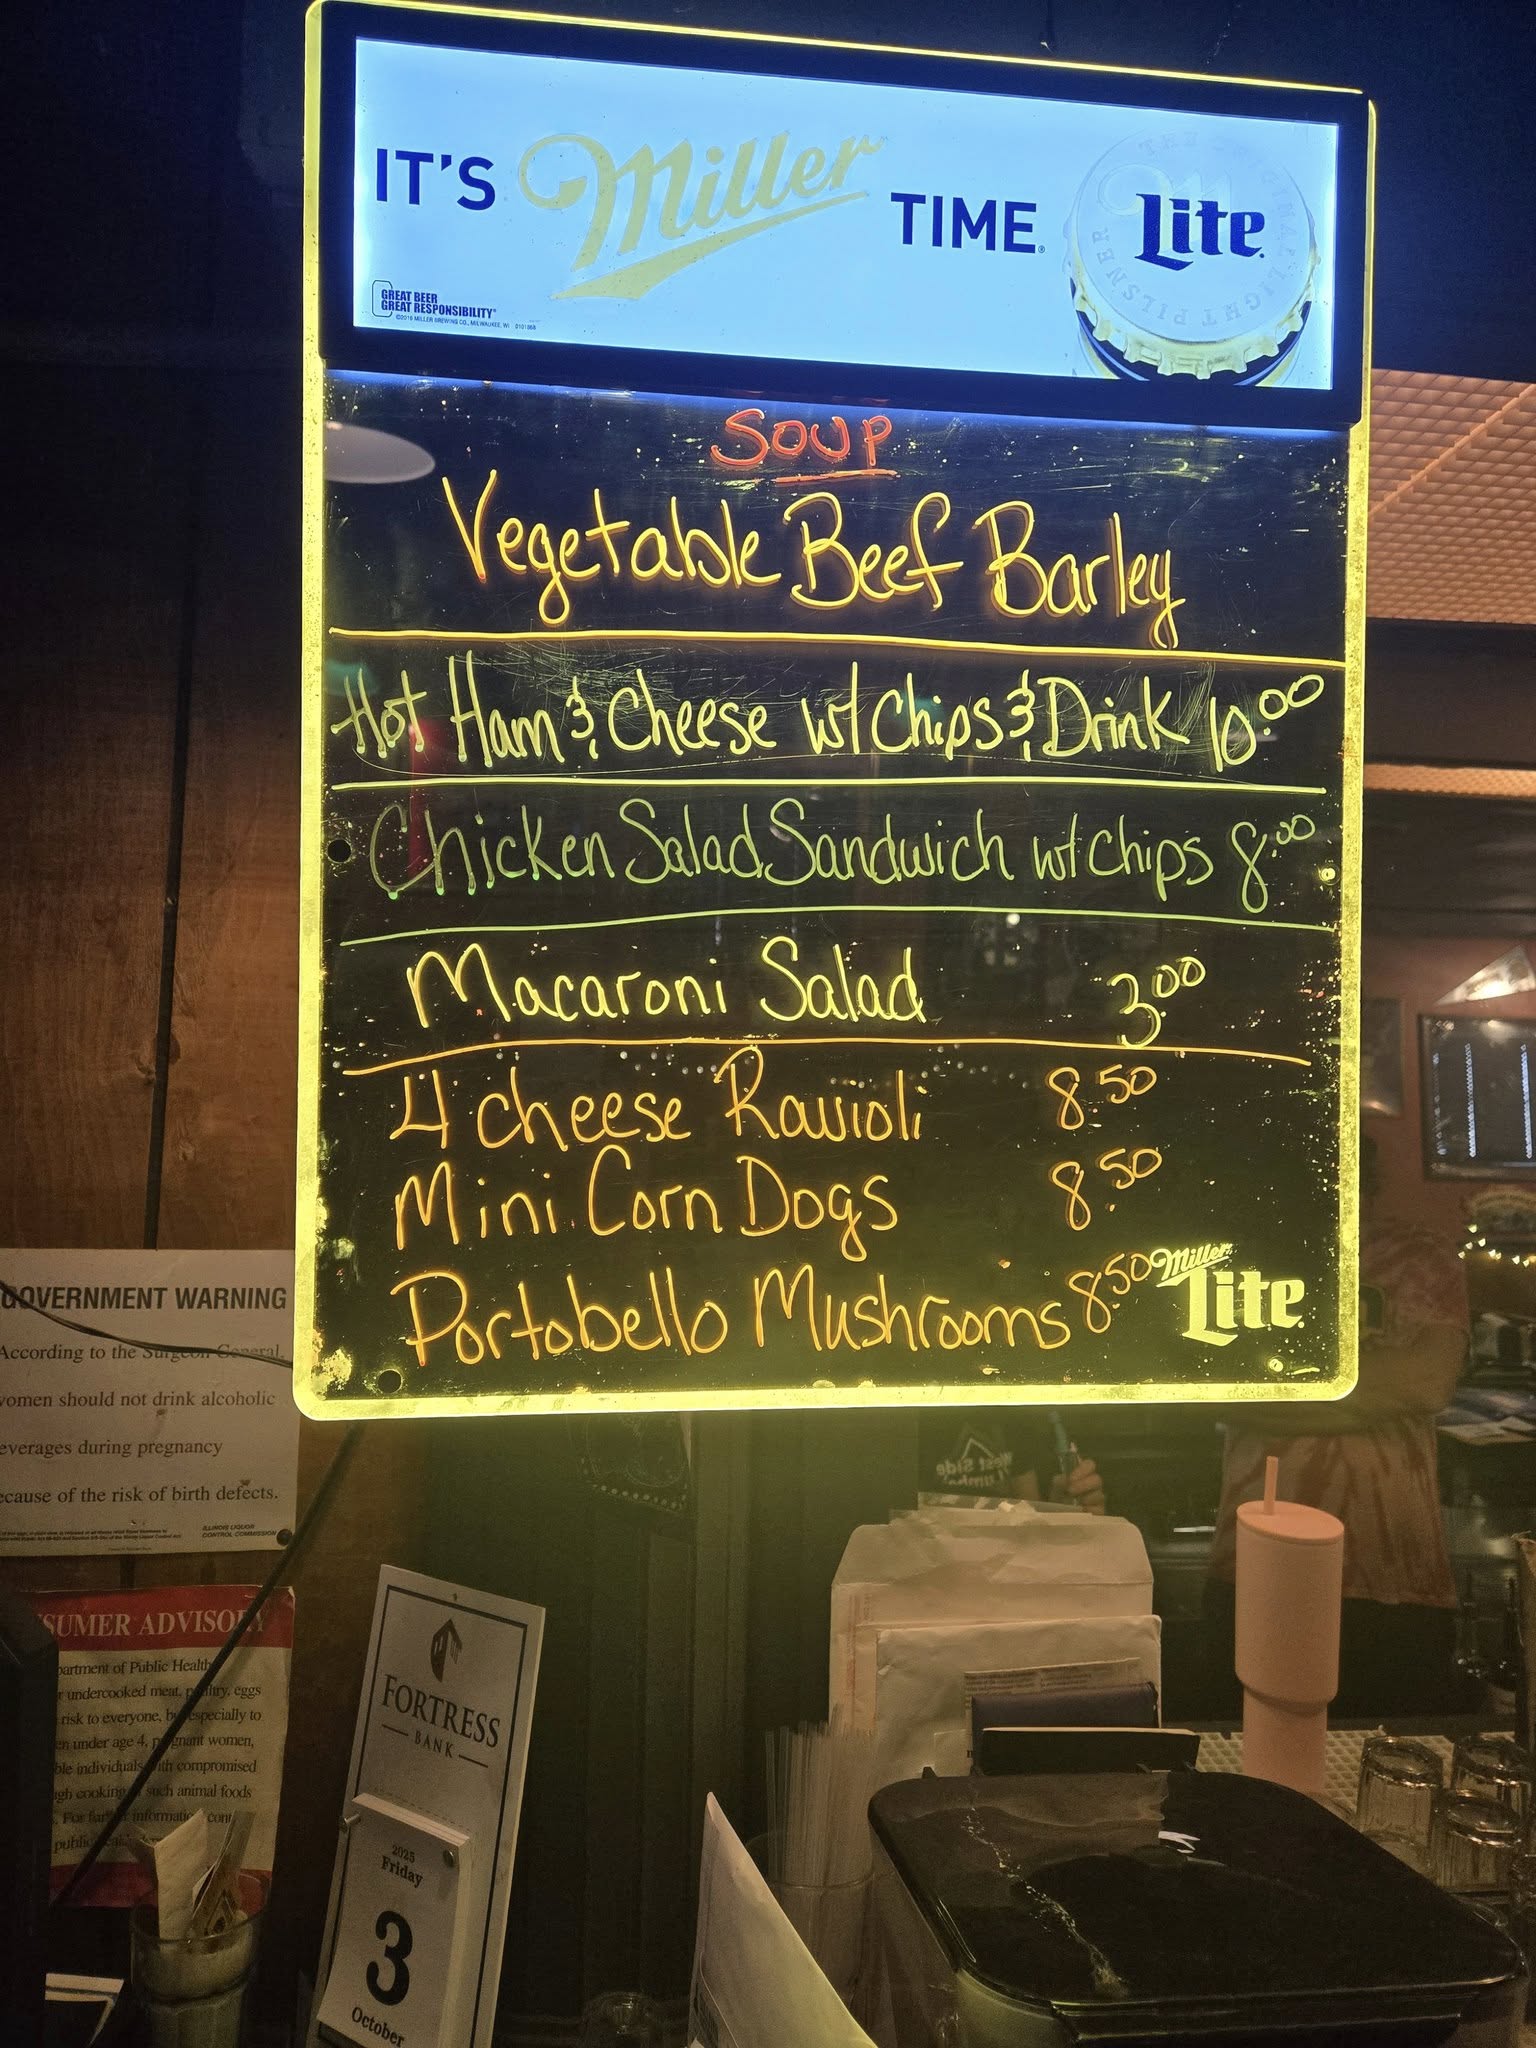 IT'S Miller TIME® Lite
GREAT BEER
GREAT RESPONSIBILITY®
©2016 MILLER BREWING CO., MILWAUKEE, WI
SOUP
Vegetable Beef Barley
Hot Ham & Cheese w/ Chips & Drink 10.00
Chicken Salad Sandwich w/ Chips 8.00
Macaroni Salad 3.00
4 cheese Ravioli 8.50
Mini Corn Dogs 8.50
Portobello Mushrooms 8.50
Miller
Lite
GOVERNMENT WARNING
According to the Surgeon General,
women should not drink alcoholic
everages during pregnancy
ecause of the risk of birth defects.
ILLINOIS LIQUOR
CONTROL COMMISSION
SUMER ADVISORY
partment of Public Health
r undercooked meat, poultry, eggs
risk to everyone, but especially to
en under age 4, pregnant women,
ble individuals with compromised
gh cooking of such animal foods
. For further information, cont
public
FORTRESS
BANK
2025
Friday
3
October
West Side